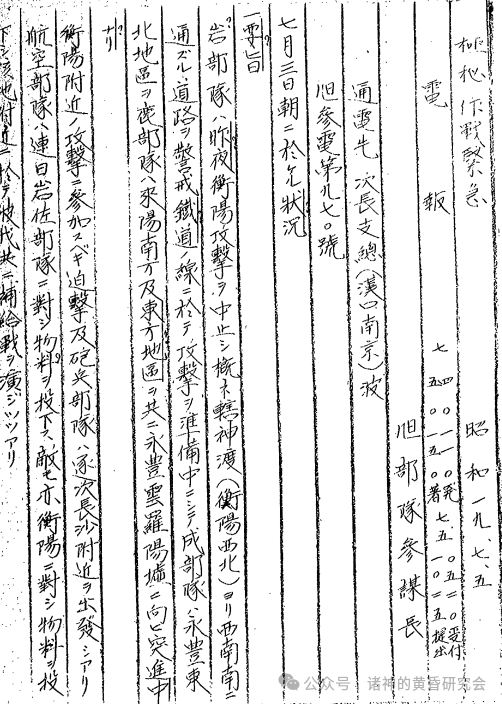 極秘作戦緊急
電報
昭和一九、七、五
七、四、〇一一〇発
七、五、〇五二〇受付
五、〇一五〇着
七、五、一〇二五提出
旭部隊参謀長
通電先 次長支総(漢口南京)波
旭参電第九七〇號
七月三日朝ニ於ケル状況
一要旨
岩部隊ハ昨夜衡陽攻撃ヲ中止シ概ネ轄神渡(衡陽西北)ヨリ西南南ニ
通ズル道路ヲ警戒鐵道ノ線ニ於テ攻撃ヲ準備中ニシテ成部隊ハ永豊東
北地區ヲ鹿部隊ハ來陽南方及東方地區ヲ共ニ永豊雲羅陽墟ニ向ヒ突進中
ナリ
衡陽附近ノ攻撃ニ参加スベキ迫撃及砲兵部隊ハ逐次長沙附近ヲ出發シアリ
航空部隊ハ連日岩佐部隊ニ對シ物料ヲ投下ス、敵モ亦衡陽ニ對シ物料ヲ投
下シ該地附近ニ於テ彼我共ニ補給戦ヲ演ジツツアリ
公众号・诸神的黄昏研究会